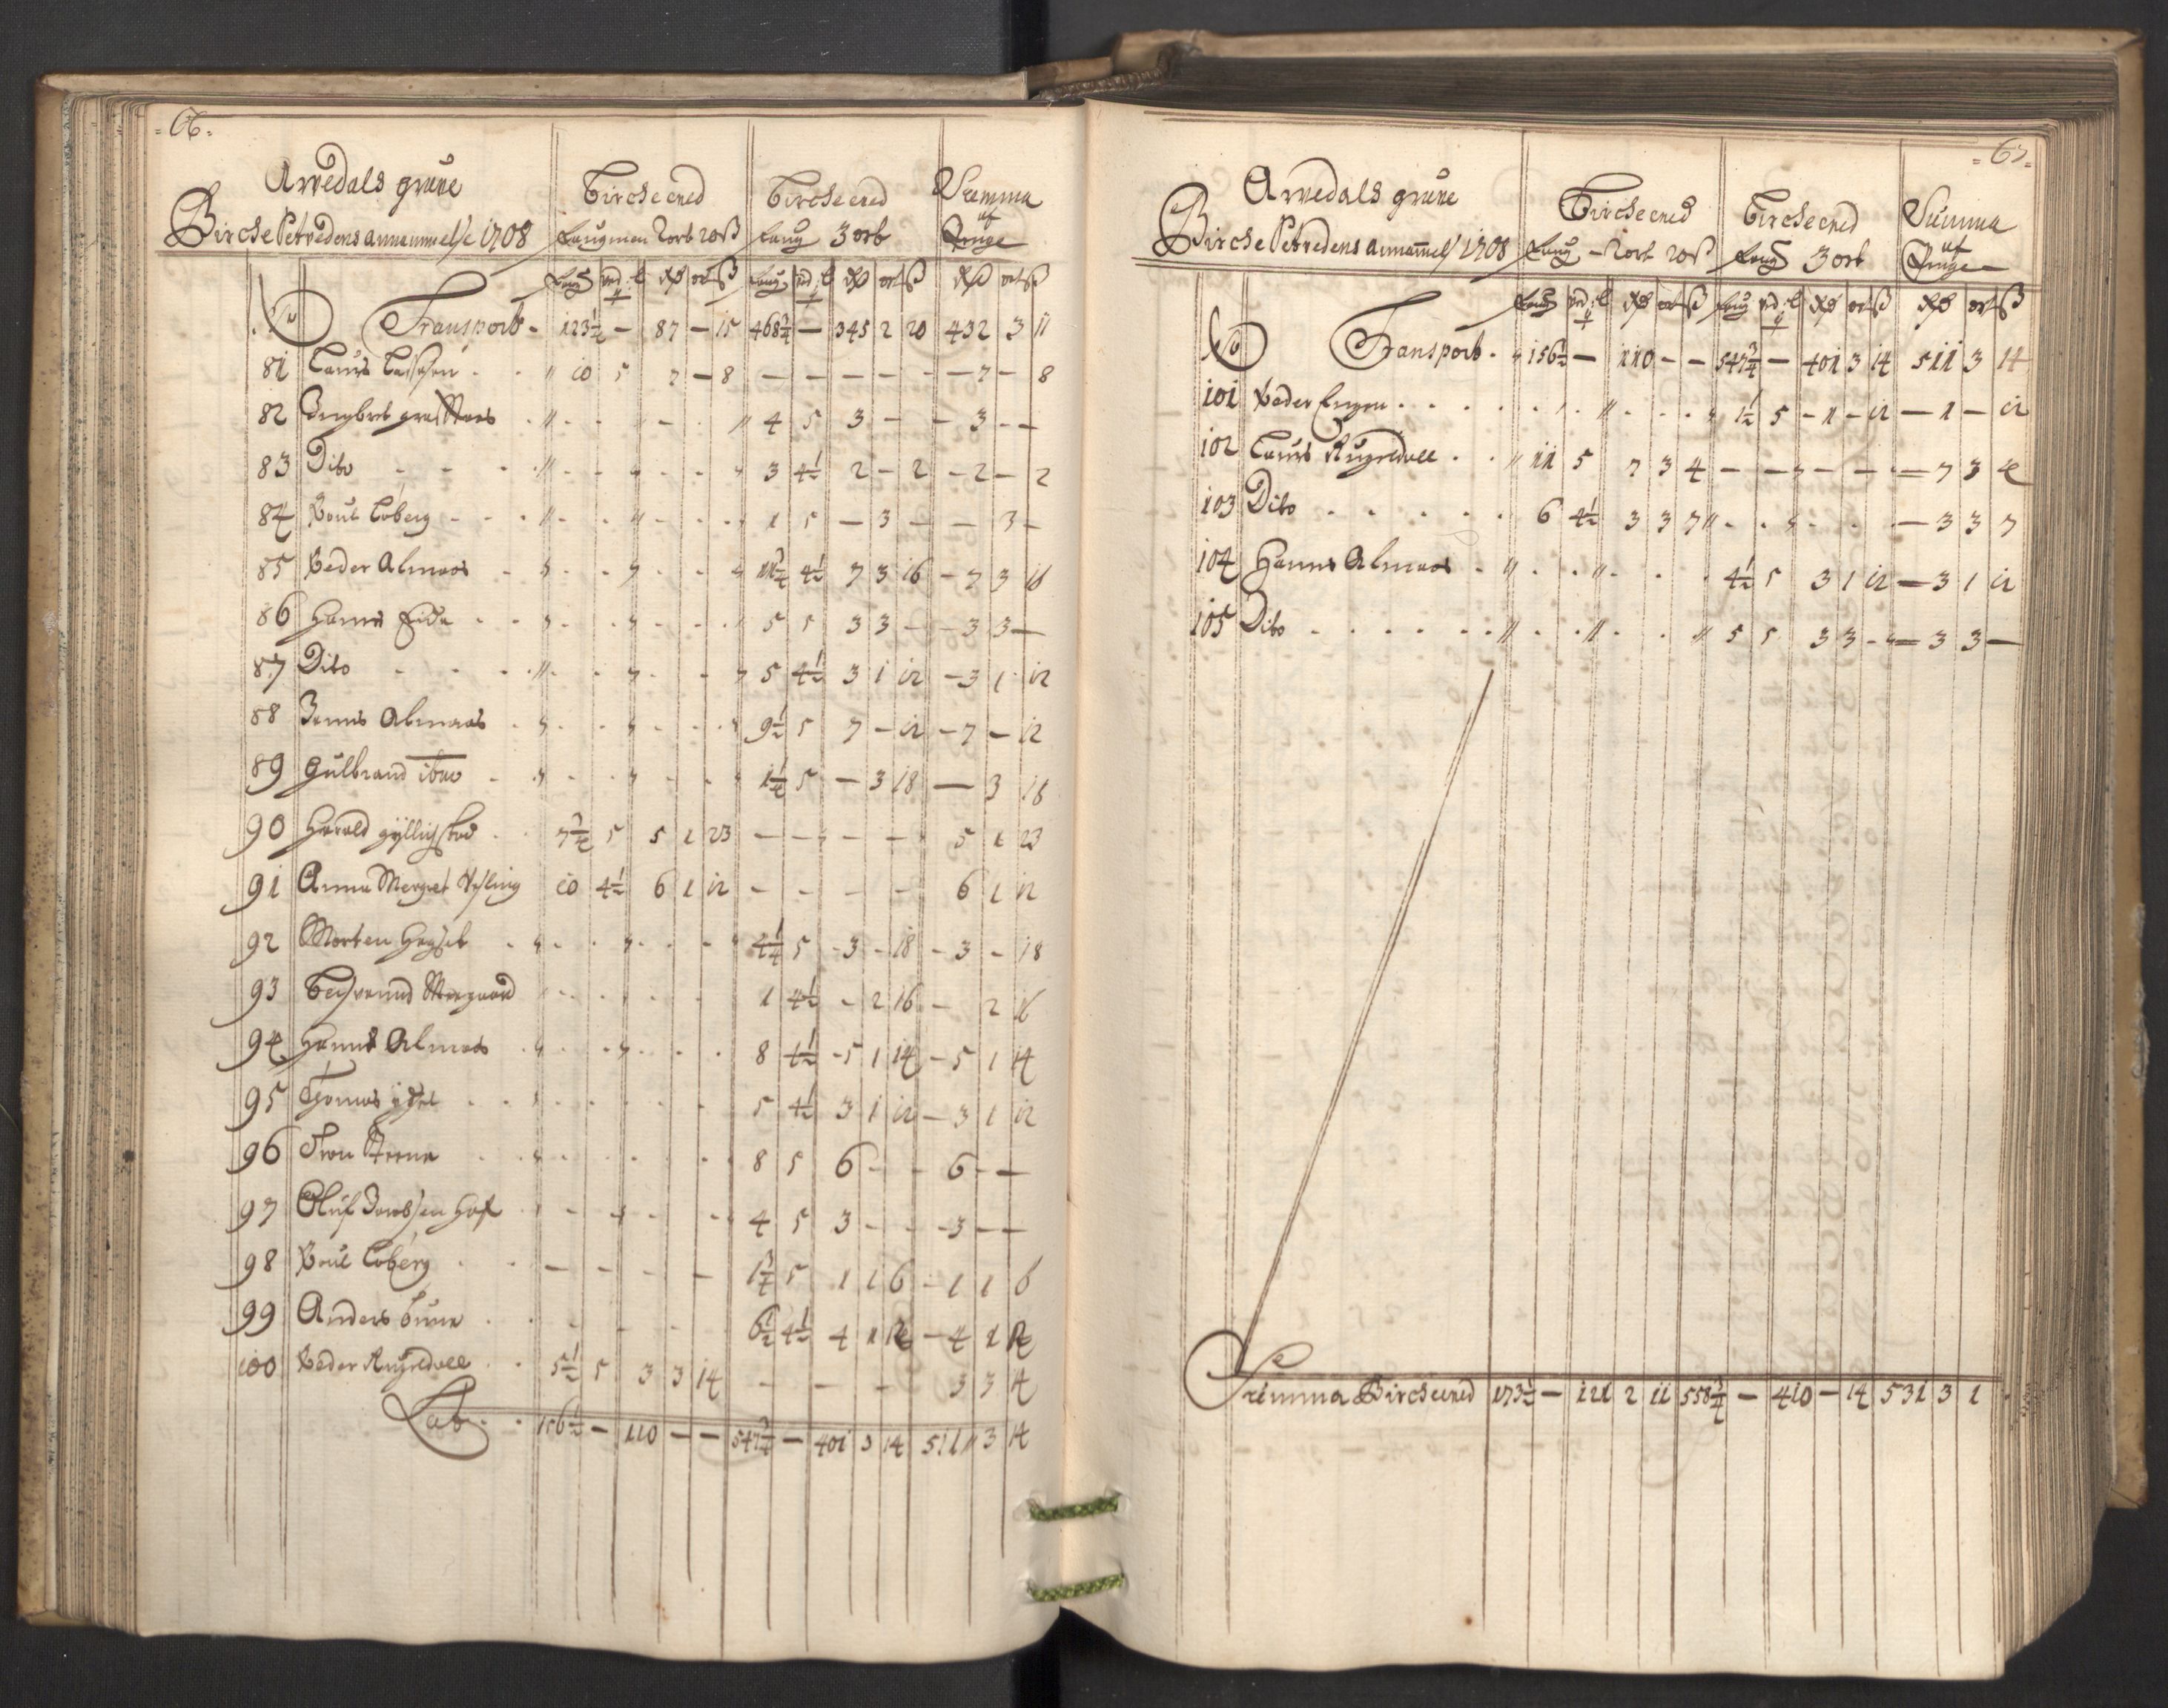 = 66 =
Arvedals grue
Birche Vedens annammelse 1708
Birche ved Laugmen 2 ort 20 ß
Birche ved Laug 3 ort
Summa af Penge
No Transport - 123 1/2 — 87 — 15 468 3/4 — 345 2 20 432 3 11
81 Laurs " 10 5 7 — 8 — — — — — 7 — 8
82 Ingbret " " " 4 5 3 — — 3 — —
83 Dito " " " 3 4 1/2 2 — 2 — 2 — 2
84 Poul Loberg " " " 1 5 — 3 — — 3 —
85 Peder Almaas " " " 11 3/4 4 1/2 7 3 16 — 7 3 16
86 Hanns Eide " " " 5 5 3 3 — — 3 3 —
87 Dito " " " 5 4 1/2 3 1 12 — 3 1 12
88 Jenns Almaas " " " 9 1/2 5 7 — 12 — 7 — 12
89 Gulbrand " " " 1 1/4 5 — 3 18 — 3 18
90 Harald 7 3/4 5 5 1 23 — — — — 5 1 23
91 Anna Margret 10 4 1/2 6 1 12 — — — — 6 1 12
92 Morten " " " 4 1/4 5 - 3 - 18 - 3 - 18
93 1 4 1/2 - 2 16 — 2 16
94 Hanns Almaas " " 8 4 1/2 - 5 1 14 - 5 1 14
95 Thomas 5 4 1/2 3 1 12 — 3 1 12
96 8 5 6 - - 6 - —
97 Oluf 4 5 3 - - - 3 — —
98 Poul Loberg — — — — 1 3/4 5 1 1 6 - 1 1 6
99 Anders 6 1/2 4 1/2 4 1 12 — 4 1 12
100 Peder Rugeldall 5 1/2 5 3 3 14 — — — 3 3 14
Lat 156 1/2 — 110 — — 547 3/4 — 401 3 14 511 " 3 14
= 67 =
Arvedals grue
Birche Vedens annammels 1708
Birche ved Laug - 2 ort 20 ß
Birche ved Laug 3 ort
Summa af Penge
No Transport - " 156 1/2 — 110 — — 547 3/4 — 401 3 14 511 3 14
101 Peder Engen " " 1 1/2 5 - 1 - 12 — 1 — 12
102 Laurs Rugeldall " 11 5 7 3 4 — — — — — 7 3 4
103 Dito 6 4 1/2 3 3 7 " " — 3 3 7
104 Hanns Almaas " " 4 1/2 5 3 1 12 — 3 1 12
105 Dito " " " 5 5 3 3 - — 3 3 —
Summa Bircheved 173 1/2 — 121 2 11 558 3/4 — 410 — 14 531 3 1